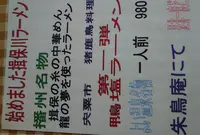 始めました揖保川ラーメン
播州名物
揖保の糸の中華めん
龍の夢を使ったラーメン
宍粟市 猪鹿鳥料理
第一弾
鴨塩ラーメン
一人前 980
朱鳥庵にて